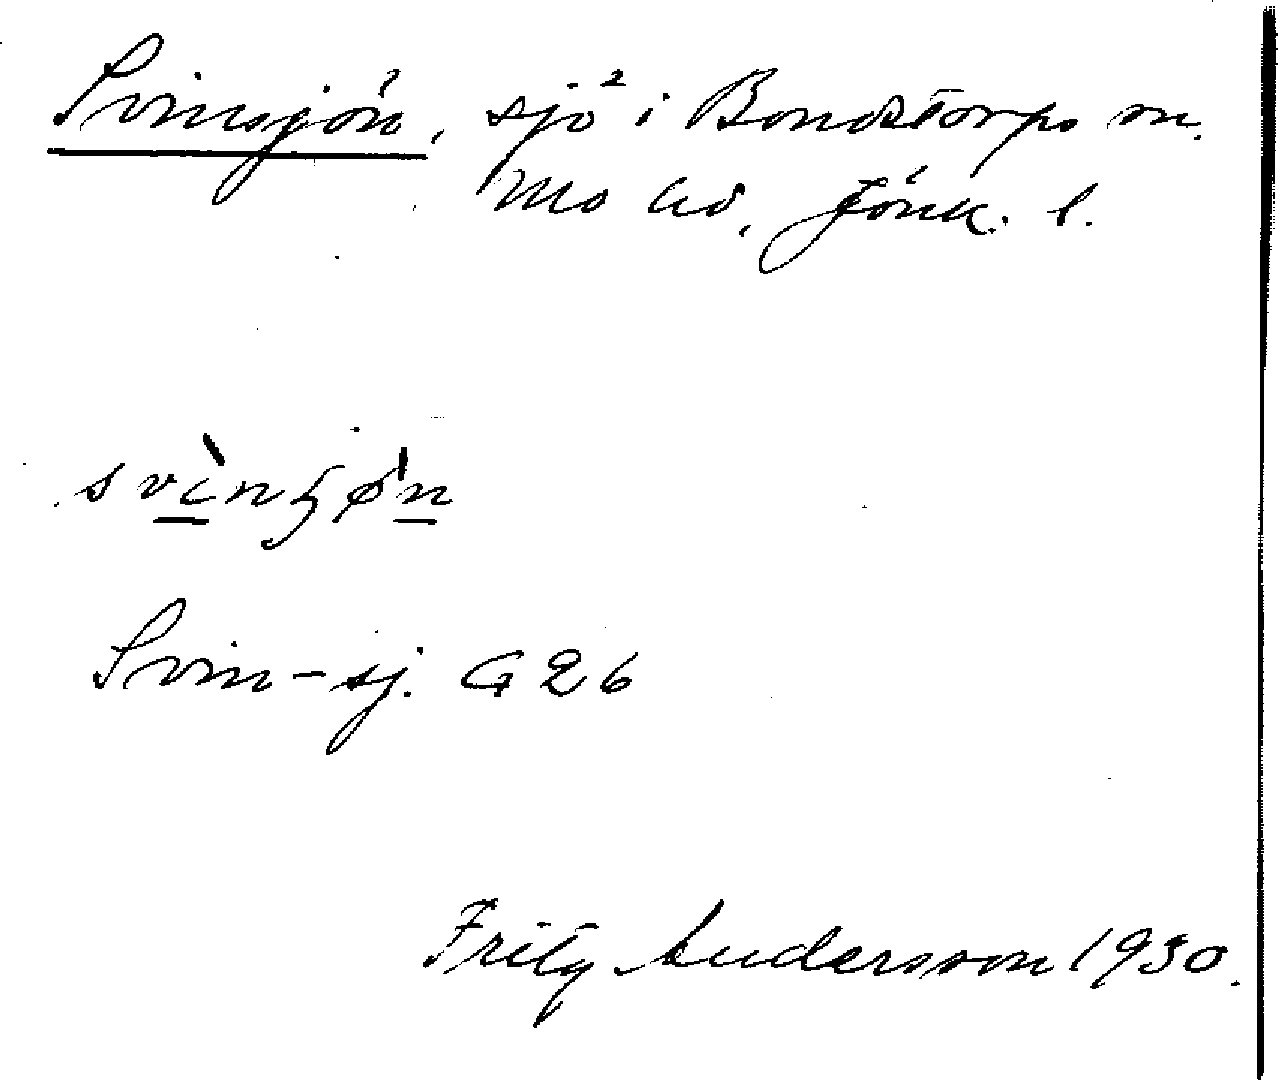 Svinsjön, sjö i Bondstorps sn.
Mo hd, Jönk. l.
svinʒøn
Svin-sj. G 26
Fritz Andersson 1930.